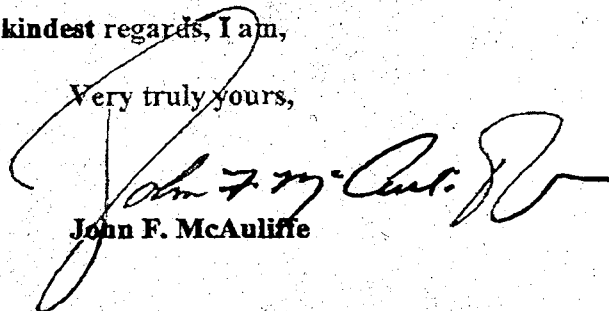 kindest regards, I am,
Very truly yours,
John F. McAuliffe
John F. McAuliffe